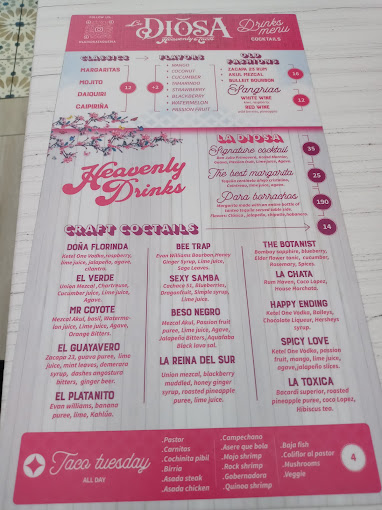 La DIOSA
Heavenly
Drinks menu
COCKTAILS
CLASSICS + FLAVORS
MARGARITAS
MOJITO
DAIQUIRI
CAIPIRIÑA
12
+2
• MANGO
• COCONUT
• CUCUMBER
• TAMARINDO
• STRAWBERRY
• BLACKBERRY
• WATERMELON
• PASSION FRUIT
OLD FASHIONS
• ZACAPA 23 RUM
• AXUL MEZCAL
• BULLEIT BOURBON
16
Sangrias
WHITE WINE
RED WINE
12
Heavenly Drinks
LA DIOSA
Signature cocktail
35
The best margarita
25
Para borrachos
190
CRAFT COCTAILS
14
DOÑA FLORINDA
Ketel One Vodka, raspberry,
lime juice, jalapeño, agave,
cilantro.
EL VERDE
Union Mezcal, Chartreuse,
Cucumber juice, lime juice,
Agave.
MR COYOTE
Mezcal Akul, basil, Watermelon
juice, Lime juice, Agave,
Orange Bitters.
EL GUAYAVERO
Zacapa 23, guava puree, lime
juice, mint leaves, demerara
syrup, dashes angostura
bitters, ginger beer.
EL PLATANITO
Evan williams, banana
puree, lime, Kahlúa.
BEE TRAP
Evan Williams Bourbon, Honey
Ginger Syrup, Lime juice,
Sage Leaves.
SEXY SAMBA
Cachaça 51, Blueberries,
Dragonfruit, Simple syrup,
Lime juice.
BESO NEGRO
Mezcal Akul, Passion fruit
puree, Lime juice, Agave,
Jalapeño Bitters, Aquafaba
Black lava salt.
LA REINA DEL SUR
Union mezcal, blackberry
muddled, honey ginger
syrup, roasted pineapple
puree, lime juice.
THE BOTANIST
Bombay Sapphire, blueberry,
Elder flower tonic, cucumber,
Rosemary, Spices.
LA CHATA
Rum Haven, Coco Lopez,
House Horchata.
HAPPY ENDING
Ketel One Vodka, Baileys,
Chocolate Liqueur, Hersheys
syrup.
SPICY LOVE
Ketel One Vodka, passion
fruit, mango, lime juice,
agave, jalapeño slices.
LA TOXICA
Bacardi superior, roasted
pineapple puree, coco Lopez,
Hibiscus tea.
Taco tuesday
ALL DAY
.Pastor
.Carnitas
.Cochinita pibil
.Birria
.Asada steak
.Asada chicken
.Campechano
.Asere que bola
.Mojo shrimp
.Rock shrimp
.Gobernadora
.Quinoa shrimp
.Baja fish
.Coliflor al pastor
.Mushrooms
.Veggie
4